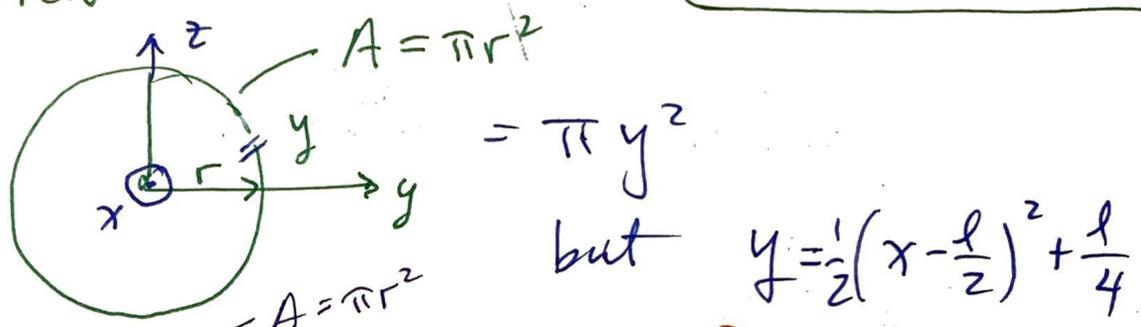 z
A = πr²
y
= πy²
r
y
x
but y = ½(x - l/2)² + l/4
A = πr²